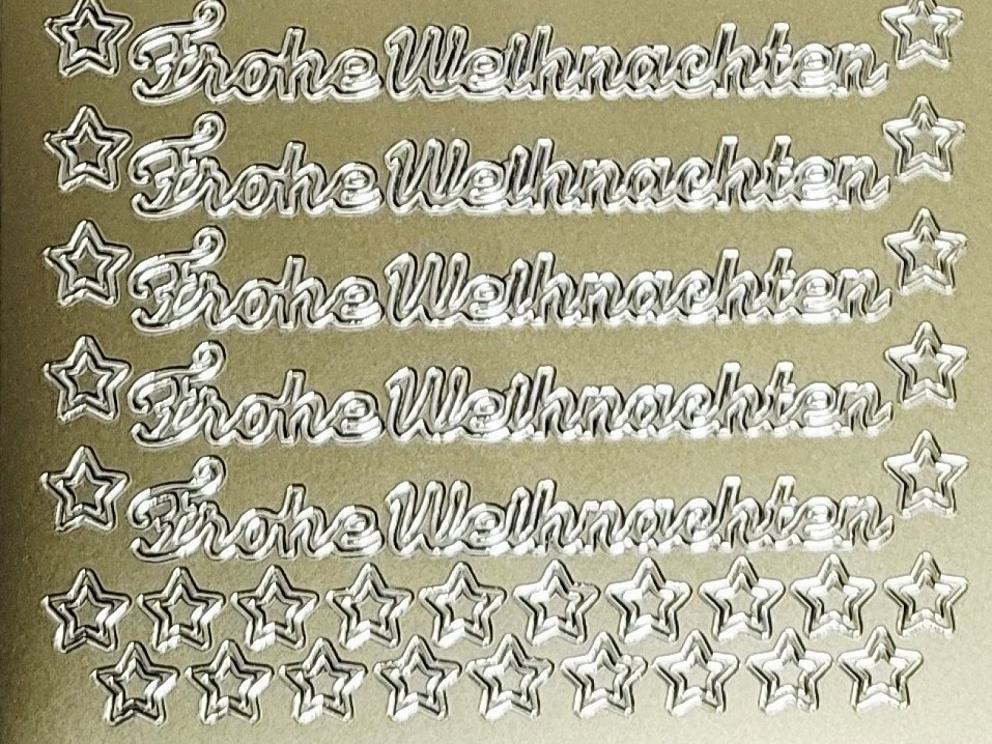 Frohe Weihnachten
Frohe Weihnachten
Frohe Weihnachten
Frohe Weihnachten
Frohe Weihnachten